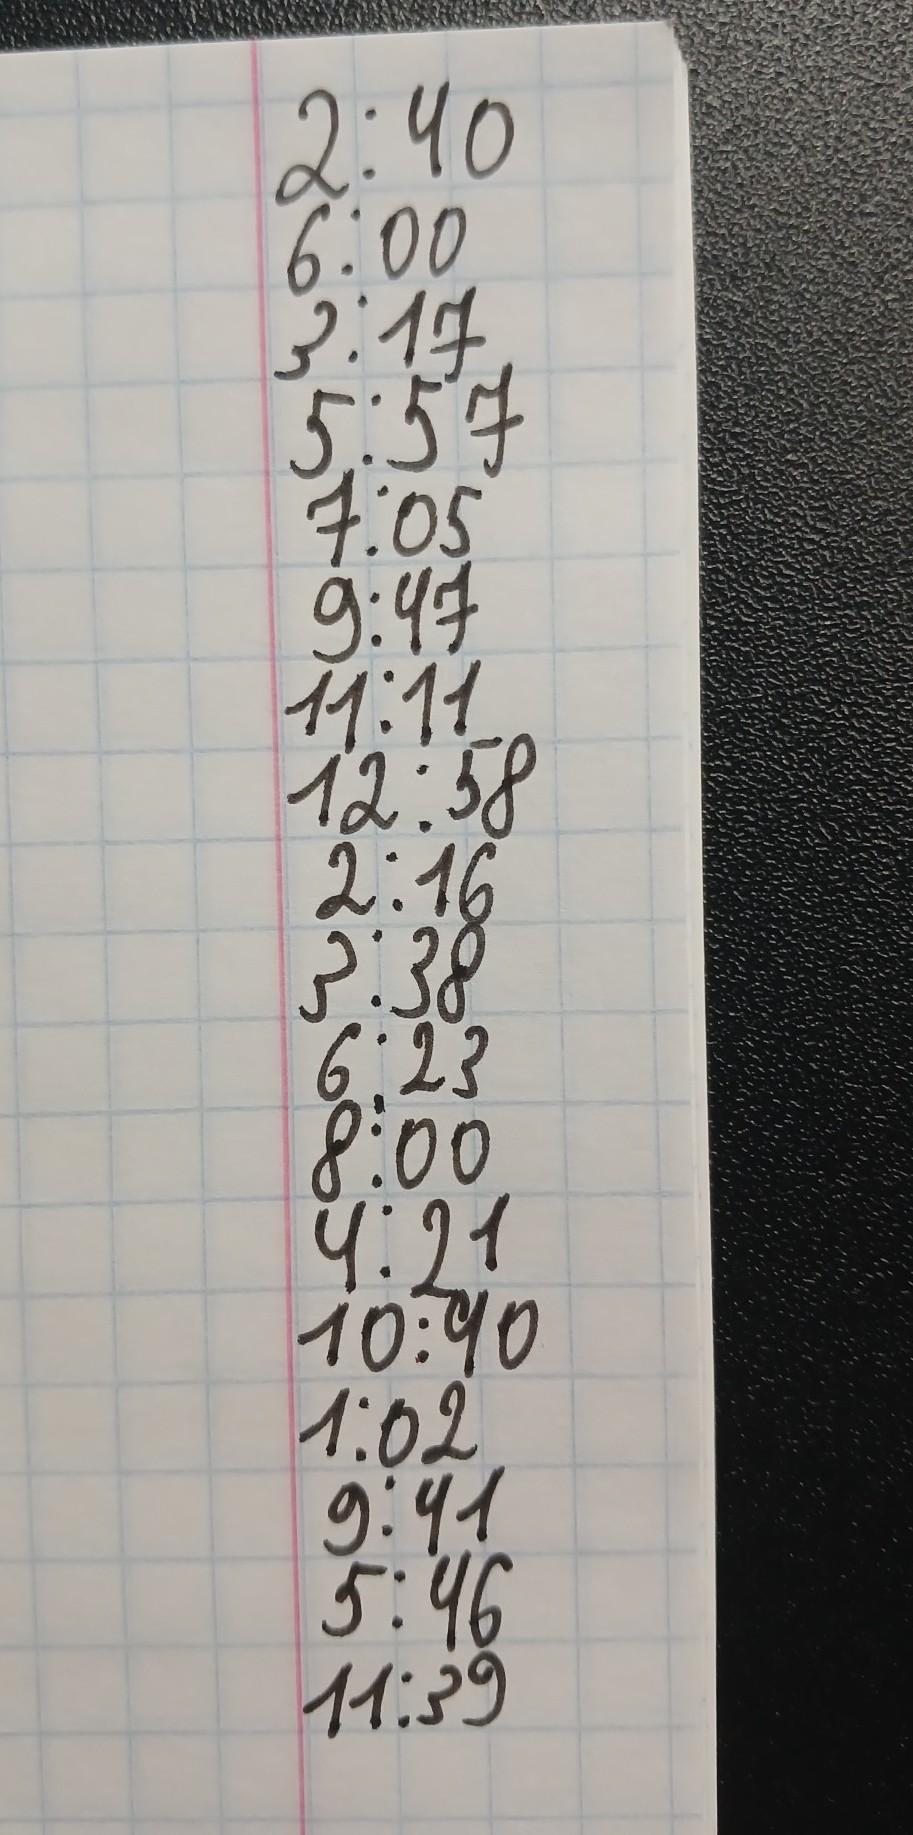 2:40
6:00
3:17
5:57
7:05
9:47
11:11
12:58
2:16
3:38
6:23
8:00
4:21
10:40
1:02
9:41
5:46
11:39